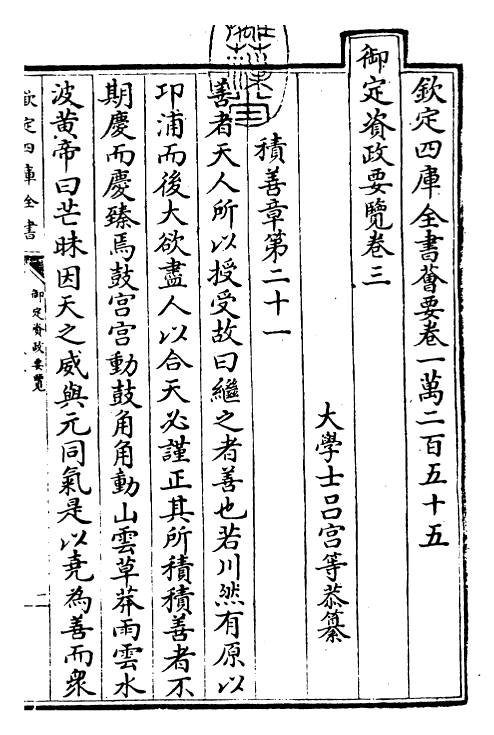 欽定四庫全書薈要卷一萬二百五十五
御定資政要覽卷三
大學士呂宮等恭纂
積善章第二十一
善者天人所以授受故曰繼之者善也若川然有原以
卭浦而後大欲盡人以合天必謹正其所積積善者不
期慶而慶臻焉鼓宮宮動鼓角角動山雲草莽雨雲水
波黃帝曰芒昧因天之威與元同氣是以堯為善而衆
欽定四庫全書
御定資政要覽